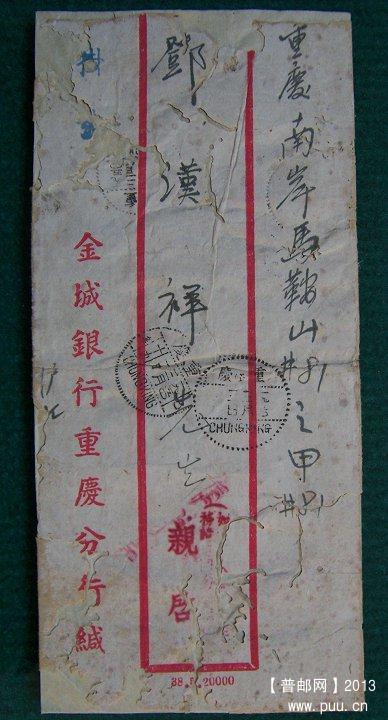 重慶南岸馬鞍山#81之甲#81
鄧漢祥先生
親啓
掛
金城銀行重慶分行緘
重慶
CHUNGKING
CHUNGKING
38.5.20000
【普邮网】2013
www.puu.cn